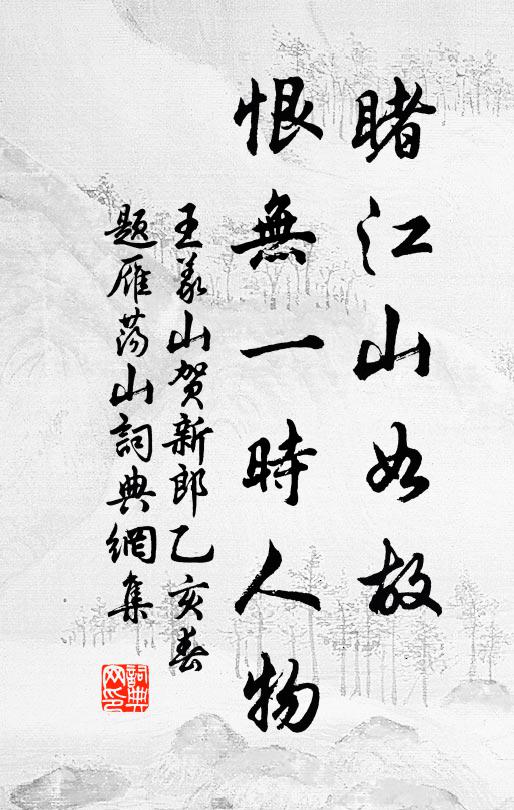 睹江山如故
恨無一時人物
王义山贺新郎乙亥春
题雁荡山詞典網集
詞典
网印